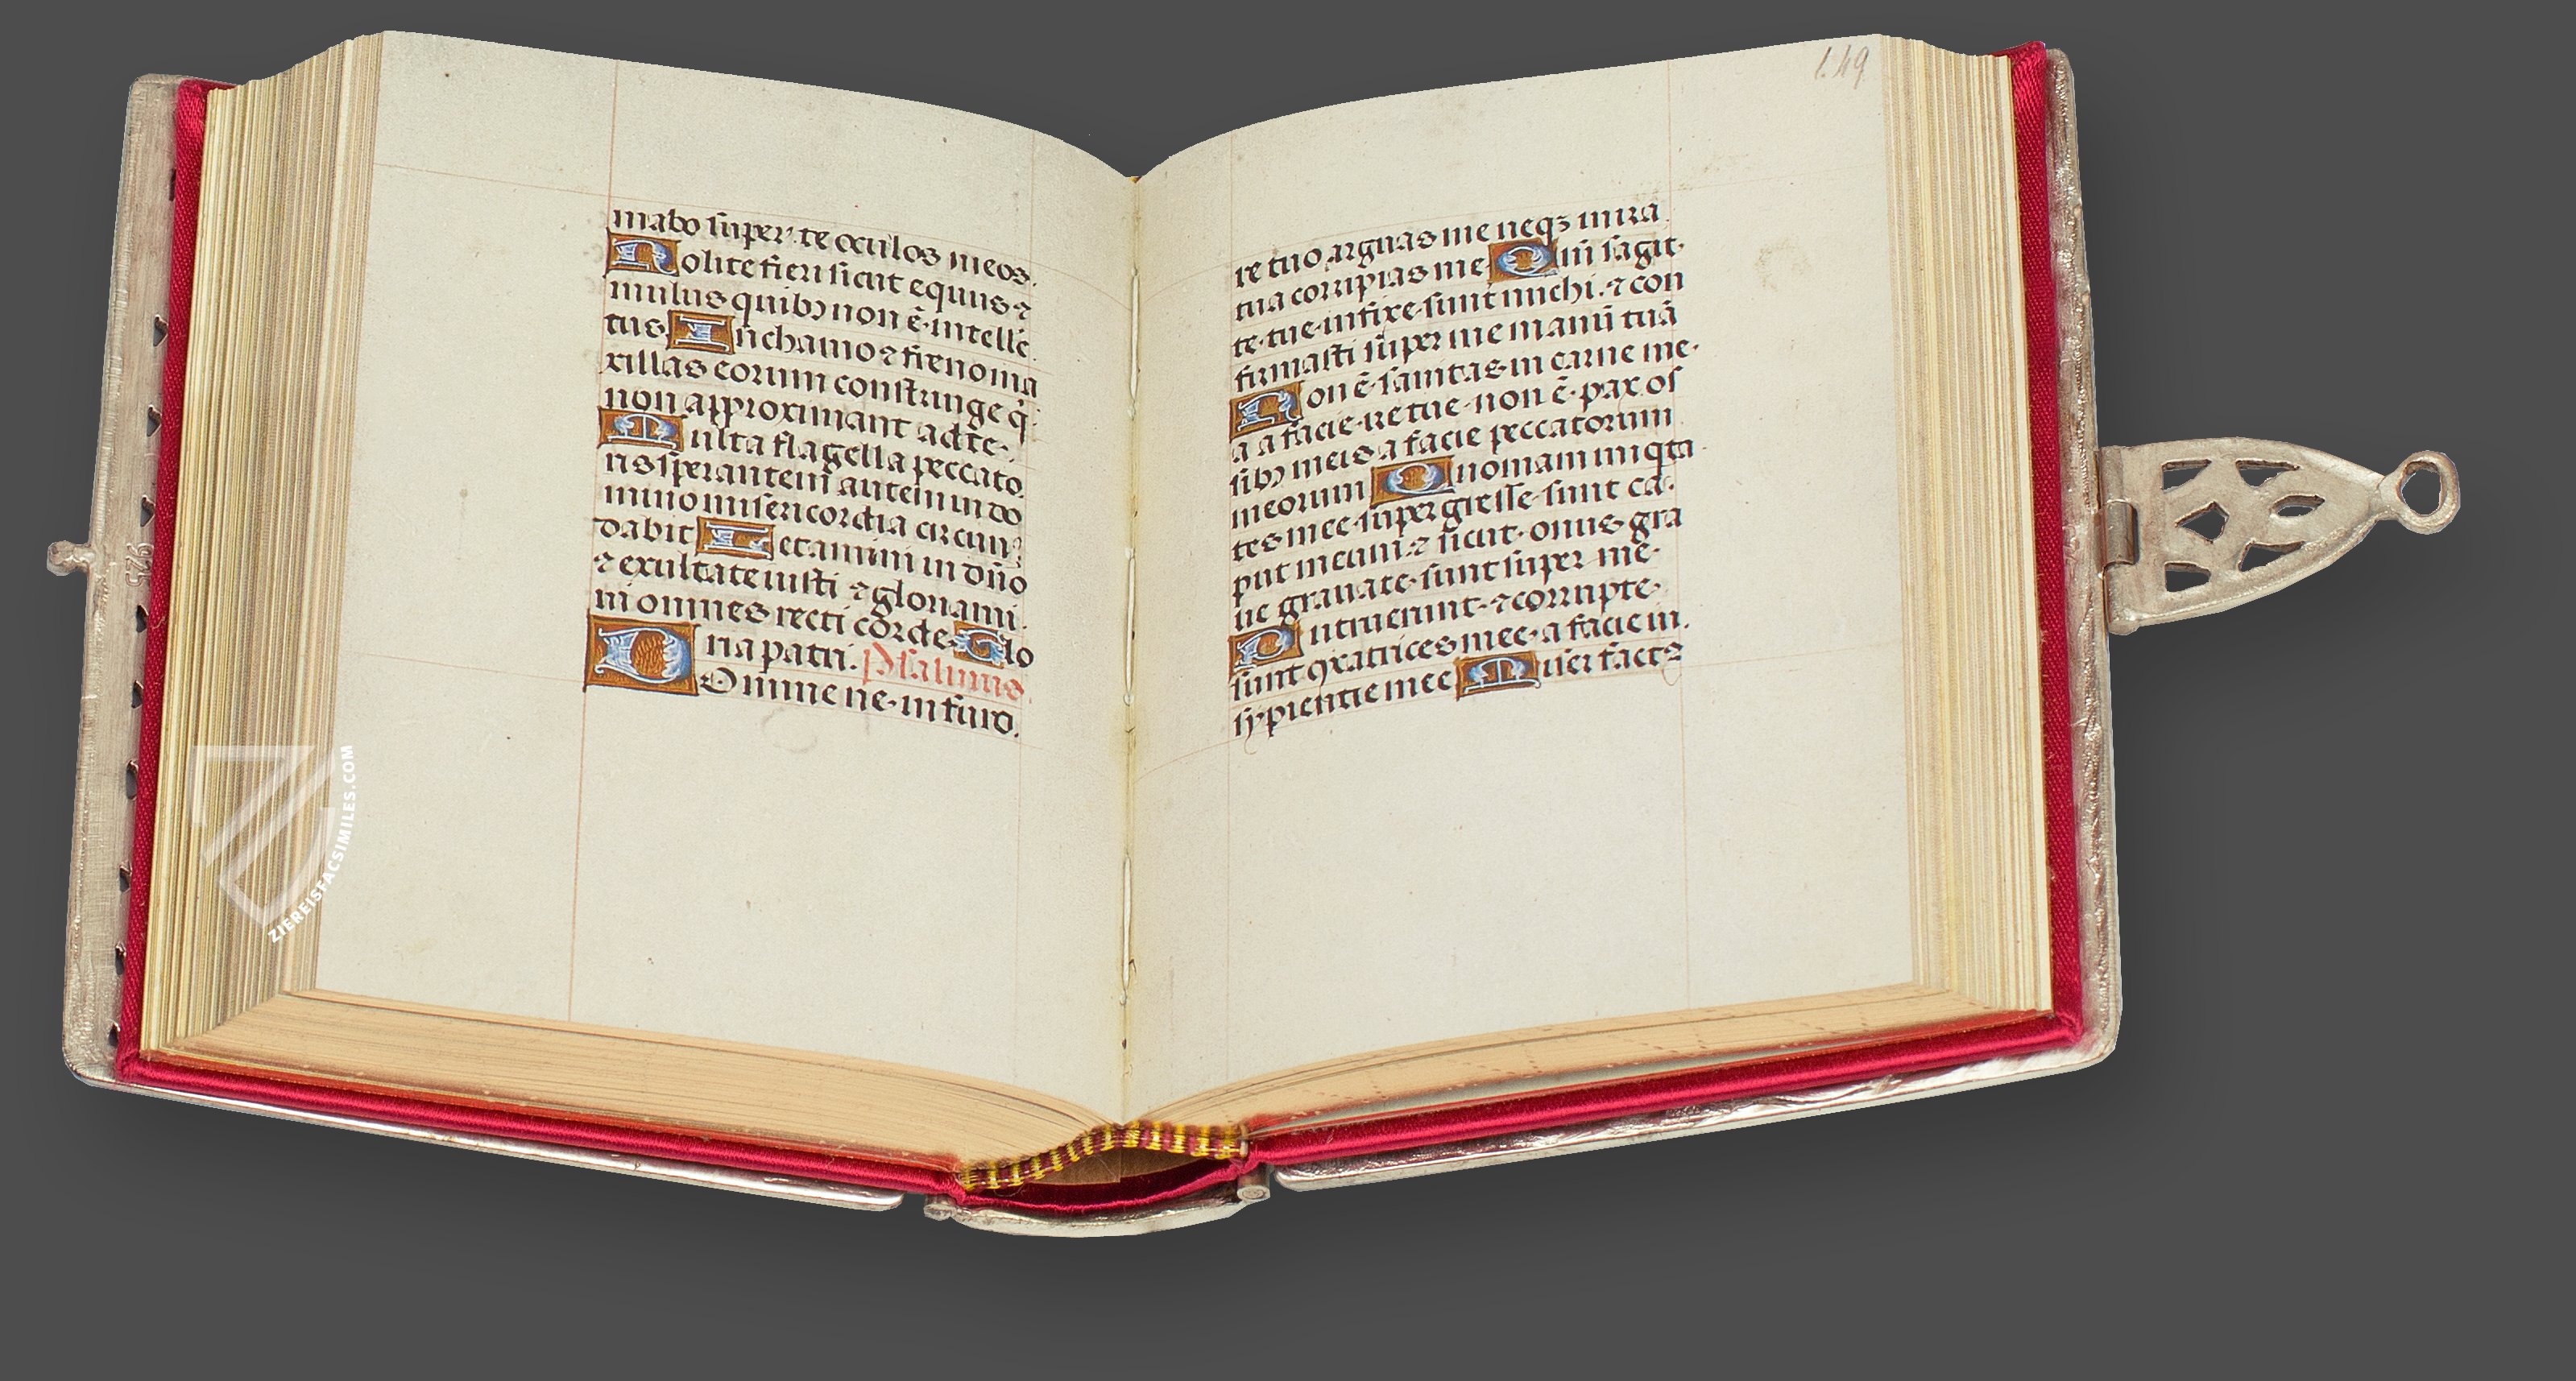 mabo super te oculos meos.
Nolite fieri sicut equus ⁊
mulus quibꝫ non ē intelle
tus. In chamo ⁊ freno ma
xillas eorum constringe q̄
non approximant ad te.
Multa flagella peccato
ris sperantem autem in do
mino misericordia circum
dabit Letamini in dño
⁊ exultate iusti ⁊ gloriami
ni omnes recti corde. Glo
ria patri. Psalmus
Domine ne in furo.
149
re tuo arguas me neqꝫ in ira
tua corripias me Qm̄ sagit
te tue infixe sunt michi. ⁊ con
firmasti super me manū tuā
Non ē sanitas in carne me
a a facie ire tue non ē pax os
sibꝫ meis a facie peccatorum
meorum Quoniam iniqta
tes mee supergresse sunt ca
put meum ⁊ sicut onus gra
ue grauate sunt super me
Putruerunt ⁊ corrupte
sunt cicatrices mee a facie in
sypientie mee Miser factꝰ
925
ZIEREISFACSIMILES.COM